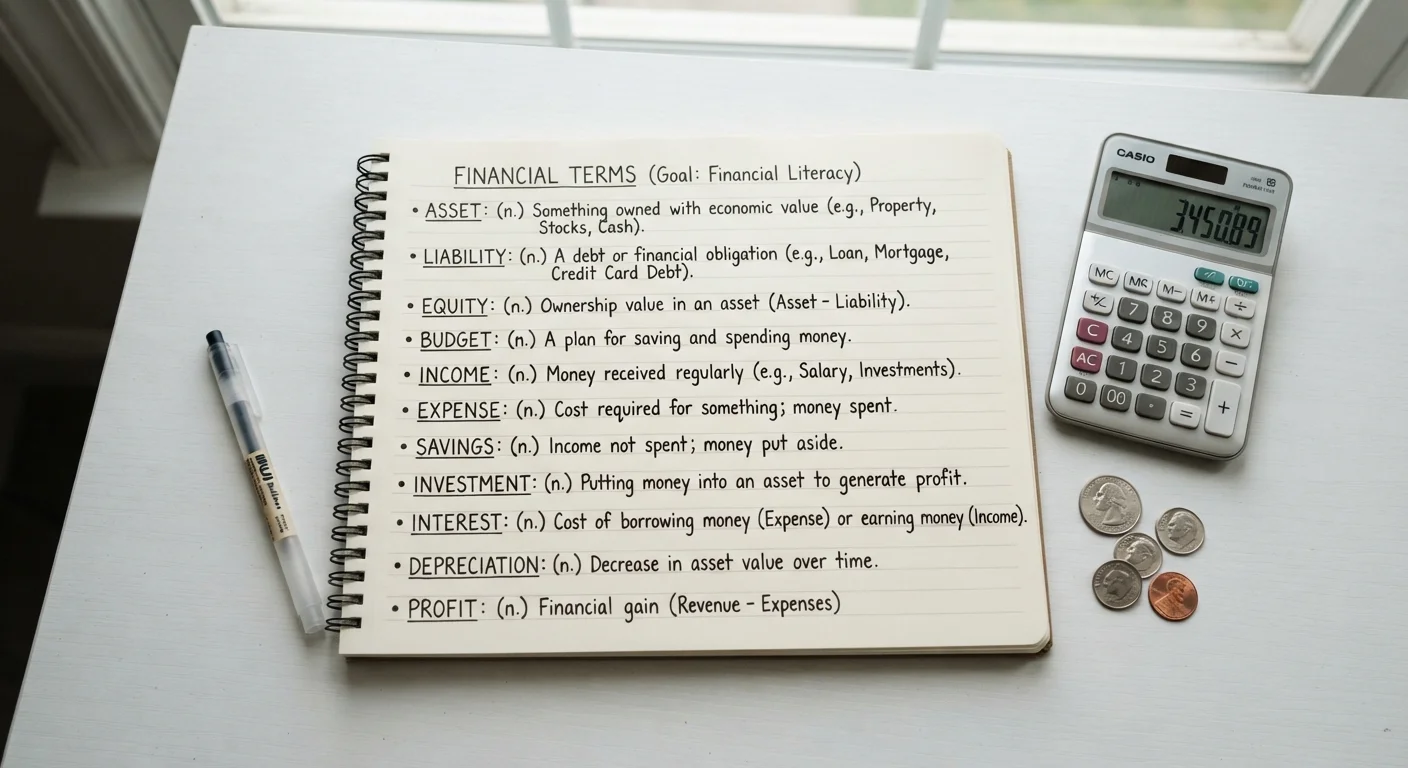 FINANCIAL TERMS (Goal: Financial Literacy)
• ASSET: (n.) Something owned with economic value (e.g., Property,
Stocks, Cash).
• LIABILITY: (n.) A debt or financial obligation (e.g., Loan, Mortgage,
Credit Card Debt).
• EQUITY: (n.) Ownership value in an asset (Asset – Liability).
• BUDGET: (n.) A plan for saving and spending money.
• INCOME: (n.) Money received regularly (e.g., Salary, Investments).
• EXPENSE: (n.) Cost required for something; money spent.
• SAVINGS: (n.) Income not spent; money put aside.
• INVESTMENT: (n.) Putting money into an asset to generate profit.
• INTEREST: (n.) Cost of borrowing money (Expense) or earning money (Income).
• DEPRECIATION: (n.) Decrease in asset value over time.
• PROFIT: (n.) Financial gain (Revenue – Expenses)
CASIO
MC M–
+/– 7 8 9 ÷
C 4 5 6 ×
AC 1 2 3 –
0 00 . = +